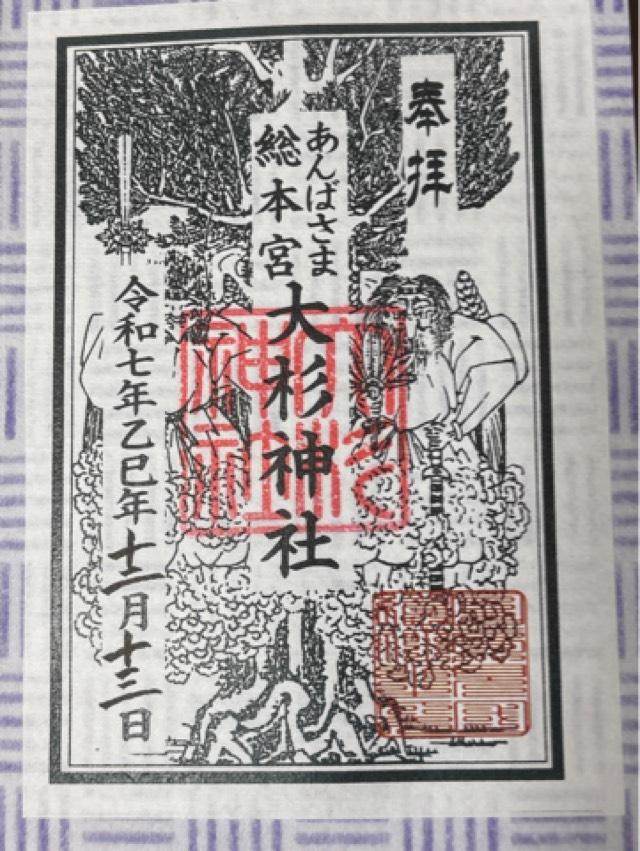 奉拝
あんばさま
総本宮
大杉神社
令和七年乙巳年十二月十三日
大杉神社